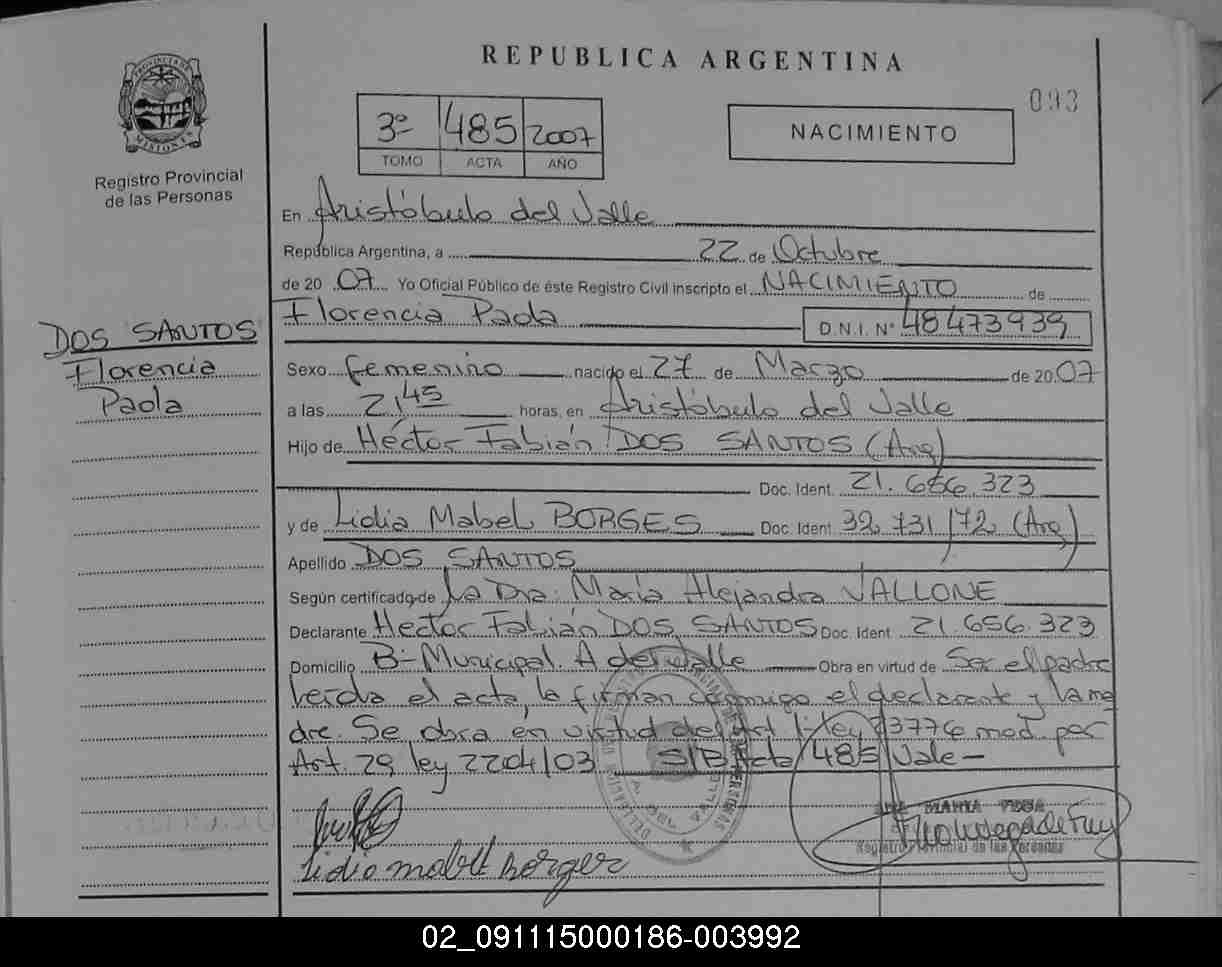 PROVINCIA DE
MISIONES
Registro Provincial
de las Personas
DOS SANTOS
Florencia
Paola
REPUBLICA ARGENTINA
093
3º 485 2007
TOMO ACTA AÑO
NACIMIENTO
En Aristóbulo del Valle
República Argentina, a 22 de Octubre
de 20 07 Yo Oficial Público de éste Registro Civil inscripto el NACIMIENTO de
Florencia Paola D.N.I. Nº 48473939
Sexo femenino nacido el 27 de Marzo de 20 07
a las 21,45 horas, en Aristóbulo del Valle
Hijo de Héctor Fabián DOS SANTOS (Arg)
Doc. Ident. 21.656.323
y de Lidia Mabel BORGES Doc. Ident. 32.731.172 (Arg)
Apellido DOS SANTOS
Según certificado de La Dra: María Alejandra VALLONE
Declarante Héctor Fabián DOS SANTOS Doc. Ident. 21.656.323
Domicilio Bº Municipal. A del Valle Obra en virtud de Ser el padre
leída el acta, la firman conmigo el declarante y la ma
dre. Se obra en virtud del Art 1-ley 3776 mod. por
Art. 29 ley 2204/03 S/B Acta 485 Vale-
A. DEL VALLE
ANA MARIA VEGA
Registro Provincial de las Personas
Lidia mabel Borges
02_091115000186-003992